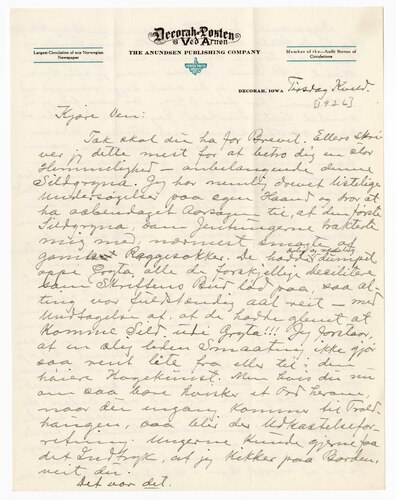 Decorah-Posten
og Ved Arnen
THE ANUNDSEN PUBLISHING COMPANY
Largest Circulation of any Norwegian
Newspaper
Member of the Audit Bureau of
Circulations
DECORAH, IOWA Tirsdag Kveld.
[1926]
Kjære Ven:
Tak skal du ha for Brevit. Ellers skri-
ver jeg dette mest for at betro dig en stor
Hemmelighed – anbelangende denne
Sildgryna. Jeg har nemlig drevet listelige
Undersøgelser paa egen Haand og tror at
ha opdaget Aarsagen til, at den første
Sildgryna som Jentungerne trakterte
mig med nærmest smagte af
gamle Raggesokker. De hadde
oppi Gryta, alle de forskjellige
som Skriftens Bud lød paa, saa al-
ting var fuldstændig aal reit – med
Undtagelse af, at de hadde glemt at
komme Sild udi Gryta!!! Jeg forstaar,
at en slig liten Smaating ikke gjør
saa rent lite fra eller til i den
høiere Kogekunst. Men hvis du nu
om saa bare hvisker et Ord herom,
naar du engang kommer til Trold
haugen, saa blir det Udkastelsesfor-
retning. Ungerne kunde gjerne faa
det Indtryk, at jeg kikker paa Borden,
veit du.
Det var det.